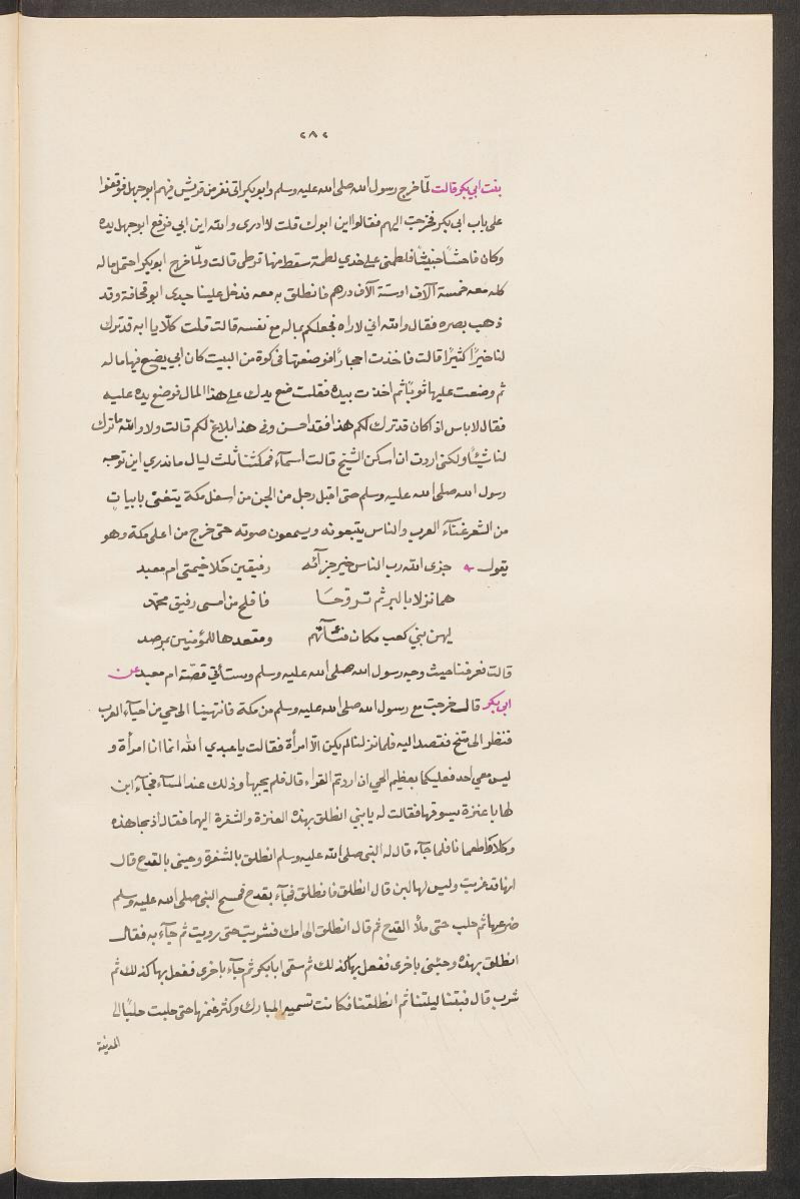 ٢٨٢
بنت ابي بكر قالت لمّا خرج رسول الله صلى الله عليه وسلم وابو بكر اتى نفر من قريش فيهم ابو جهل فوقفوا
على باب ابي بكر فخرجت اليهم فقالوا اين ابوك قلت لا ادرى والله اين ابي فرفع ابو جهل يده
وكان فاحشًا خبيثًا فلطمنى على خدي لطمة سقط منها قرطى قالت ولمّا خرج ابو بكر احتمل ماله
كله معه خمسة آلاف او ستة آلاف درهم فانطلق به معه فدخل علينا جدى ابو قحافة وقد
ذهب بصره فقال والله اني لاراه فجعلكم بماله مع نفسه قالت قلت كلّا يا ابه قد ترك
لنا خيرًا كثيرًا قالت فاخذت احجارًا فوضعتها فى كوة من البيت كان ابي يضع فيها ماله
ثم وضعت عليها ثوبًا ثم اخذت بيده فقلت ضع يدك على هذا المال فوضع يده عليه
فقال لا باس اذ اكان قد ترك لكم هذا فقد احسن وفى هذا بلاغ لكم قالت ولا والله ما ترك
لنا شيئًا ولكنى اردت ان اسكن الشيخ قالت اسمآء فمكثنا ثلث ليال ما ندري اين توجه
رسول الله صلى الله عليه وسلم حتى اقبل رجل من الجن من اسفل مكة يتغنى بابيات
من الشعر غنآء العرب والناس يتبعونه ويسمعون صوته حتى خرج من اعلى مكة وهو
يقول جزى الله رب الناس خير جزآئه رفيقين حلا خيمتى ام معبد
هما نزلا بالبر ثم تروحا فافلح من امسى رفيق محمّد
ليهن بني كعب مكان فتاتهم ومقعدها للمؤمنين بمرصد
قالت فعرفنا حيث وجه رسول الله صلى الله عليه وسلم وستأتي قصّة ام معبد عن
ابي بكر قال خرجت مع رسول الله صلى الله عليه وسلم من مكة فانتهينا الى حي من احيآء العرب
فنظر الى متنح فقصد اليه فلما نزلنا لم يكن الّا امرأة فقالت يا عبدي الله انما انا امرأة و
ليس معي احد فعليكما بعظيم الحي ان اردتم القراء قال فلم يجبها وذلك عند المسآء فجآء ابن
لها باعنزة يسوقها فقالت له يا بني انطلق بهذه العنزة والشفرة اليهما فقال اذبحا هذه
وكلا واطعمانا فلما جآء قال له النبى صلى الله عليه وسلم انطلق بالشفرة وجينى بالقدح قال
انها قد عزبت وليس لها لبن قال انطلق فانطلق فجآء بقدح فمسح النبى صلى الله عليه وسلم
ضرعها ثم حلب حتى ملأ القدح ثم قال انطلق الى امك فشربت حتى رويت ثم جآء به فقال
انطلق بهذه وجئنى باخرى ففعل بها كذلك ثم سقى ابا بكر ثم جآء باخرى ففعل بها كذلك ثم
شرب قال فبتنا ليلتنا ثم انطلقنا فكانت تسميه المبارك وكثر غنمها حتى جلبت جلبًا الى
المدينة